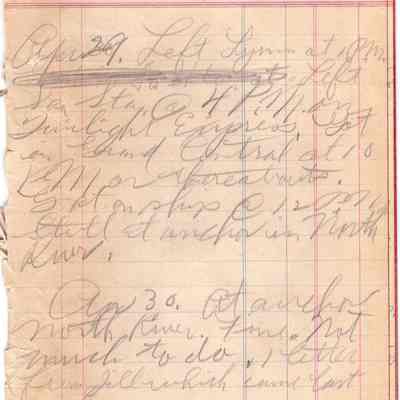 Apr 29. Left Lynn at 1 P.M.
Left
So. Sta. @ 4 P.M. on
Twilight Express. Got
in Grand Central at 10
P.M. or thereabouts.
Got on ship @ 12 P.M.
Still at anchor in North
River.
Apr 30. At anchor
North River. Fone. Not
much to do. 1 letter
from Jill which came last